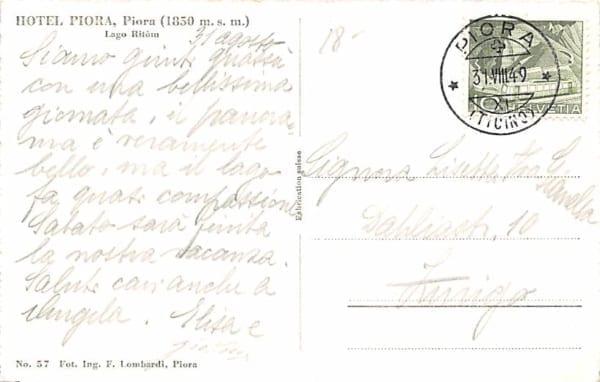 HOTEL PIORA, Piora (1850 m. s. m.)
Lago Ritòm
31 agosto
Siamo giunti quassù
con una bellissima
giornata, il panora
ma è veramente
bello, ma il lago
fa quasi compassione
Sabato sarà finita
la nostra vacanza.
Saluti cari anche a
Angela. Elisa e
No. 57 Fot. Ing. F. Lombardi, Piora
Fabrication suisse
18-
PIORA
31.VIII.49
XI
(TICINO)
10 HELVETIA
Signora
Dahliastr. 10
Zurigo